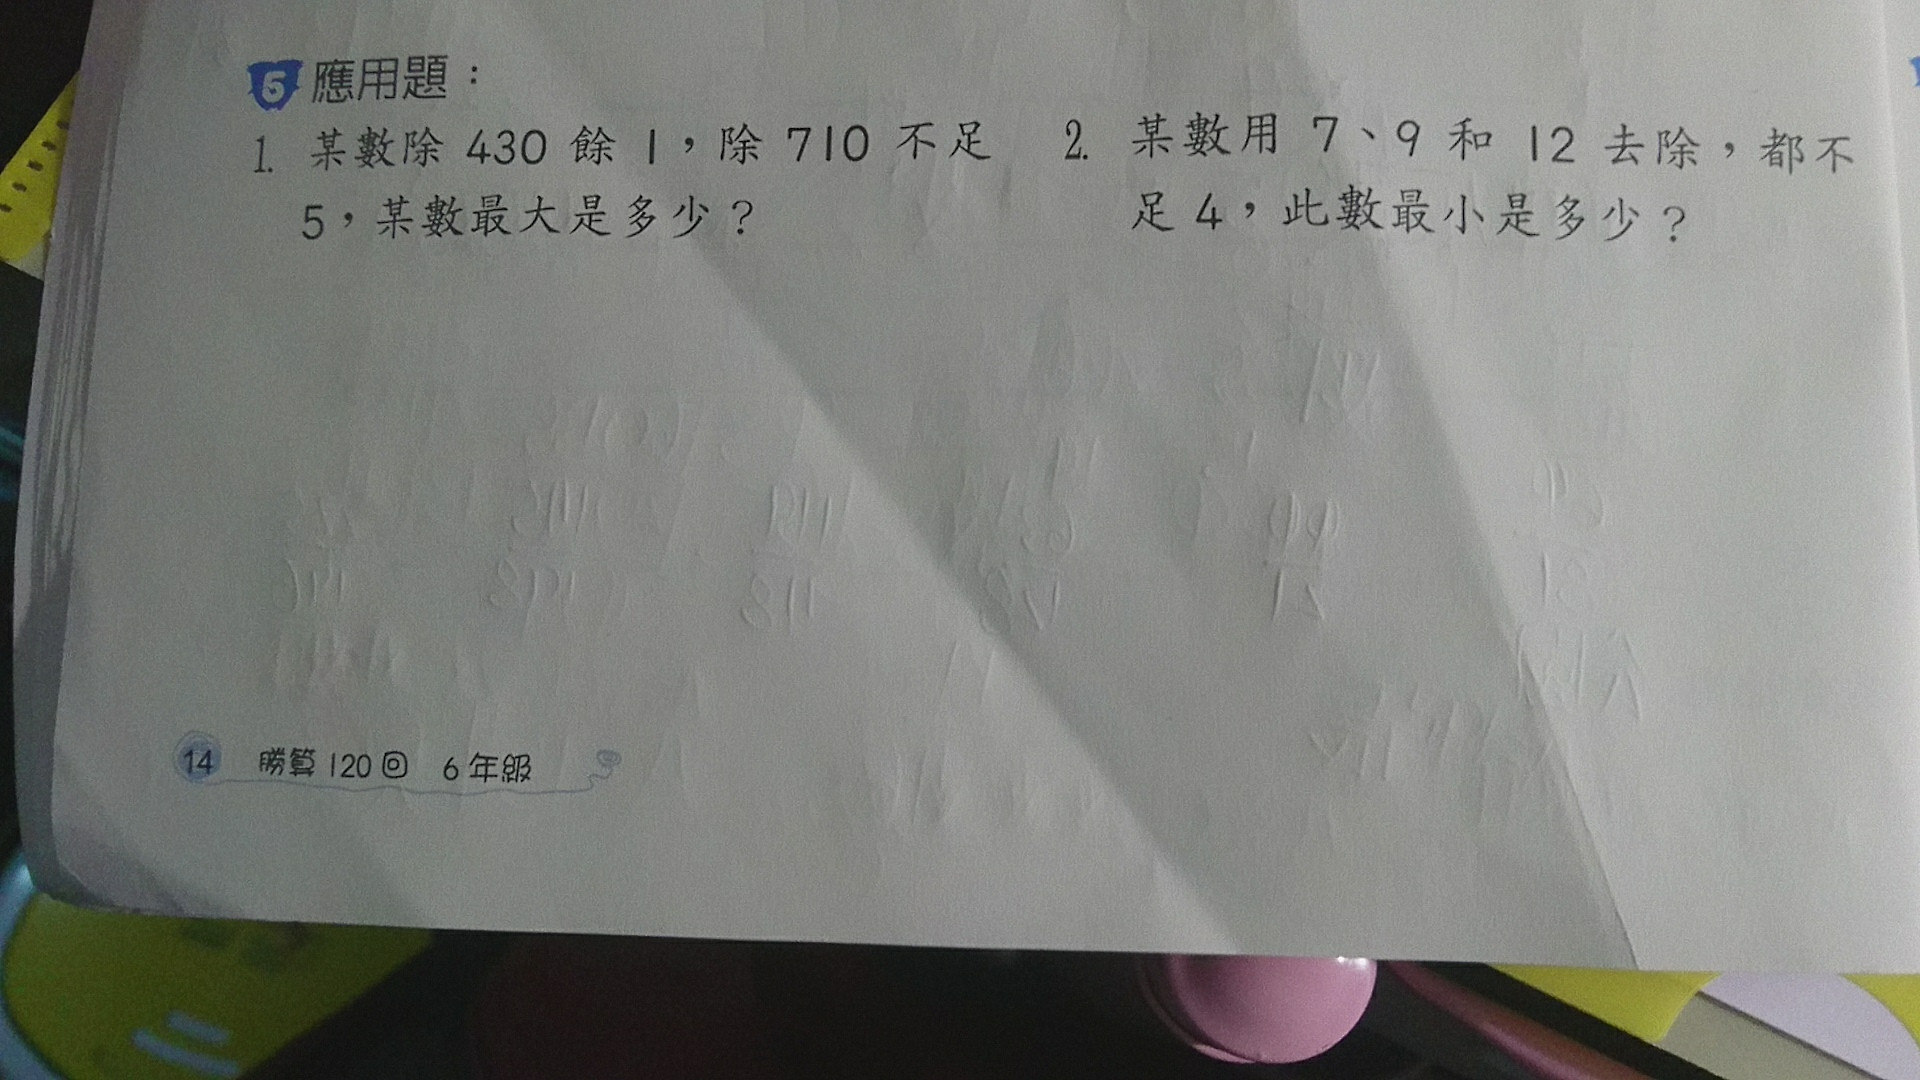 5 應用題：
1. 某數除 430 餘 1，除 710 不足
5，某數最大是多少？
2. 某數用 7、9 和 12 去除，都不
足 4，此數最小是多少？
14 勝算 120 回 6 年級